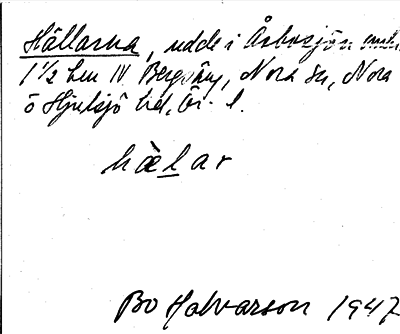 Hällarna, udde i Åsbosjön
1 1/2 km N Bergsäng, Nora sn, Nora
o Hjulsjö hd, Ör. l.
hälar
Bo Halvarson 1947